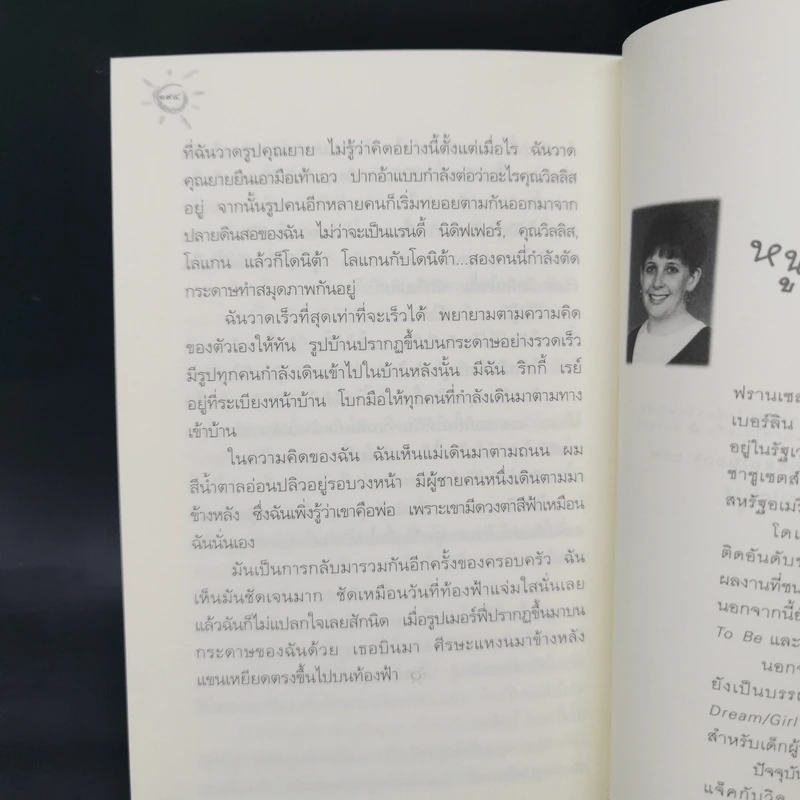 ๒๙๔
ที่ฉันวาดรูปคุณยาย ไม่รู้ว่าคิดอย่างนี้ตั้งแต่เมื่อไร ฉันวาด
คุณยายยืนเอามือเท้าเอว ปากอ้าแบบกำลังต่อว่าอะไรคุณวิลลิส
อยู่ จากนั้นรูปคนอีกหลายคนก็เริ่มทยอยตามกันออกมาจาก
ปลายดินสอของฉัน ไม่ว่าจะเป็นแรนดี้ นิดิฟเฟอร์, คุณวิลลิส,
โลแกน แล้วก็โดนิต้า โลแกนกับโดนิต้า...สองคนนี่กำลังตัด
กระดาษทำสมุดภาพกันอยู่
ฉันวาดเร็วที่สุดเท่าที่จะเร็วได้ พยายามตามความคิด
ของตัวเองให้ทัน รูปบ้านปรากฏขึ้นบนกระดาษอย่างรวดเร็ว
มีรูปทุกคนกำลังเดินเข้าไปในบ้านหลังนั้น มีฉัน ริกกี้ เรย์
อยู่ที่ระเบียงหน้าบ้าน โบกมือให้ทุกคนที่กำลังเดินมาตามทาง
เข้าบ้าน
ในความคิดของฉัน ฉันเห็นแม่เดินมาตามถนน ผม
สีน้ำตาลอ่อนปลิวอยู่รอบวงหน้า มีผู้ชายคนหนึ่งเดินตามมา
ข้างหลัง ซึ่งฉันเพิ่งรู้ว่าเขาคือพ่อ เพราะเขามีดวงตาสีฟ้าเหมือน
ฉันนั่นเอง
มันเป็นการกลับมารวมกันอีกครั้งของครอบครัว ฉัน
เห็นมันชัดเจนมาก ชัดเหมือนวันที่ท้องฟ้าแจ่มใสนั่นเลย
แล้วฉันก็ไม่แปลกใจเลยสักนิด เมื่อรูปเมอร์ฟี่ปรากฏขึ้นมาบน
กระดาษของฉันด้วย เธอบินมา ศีรษะแหงนมาข้างหลัง
แขนเหยียดตรงขึ้นไปบนท้องฟ้า
หนู
ฟรานเซส
เบอร์ลิน
อยู่ในรัฐเว
ชาชูเซตส์
สหรัฐอเมริ
โดเ
ติดอันดับข
ผลงานที่ชน
นอกจากนี้ยั
To Be และ
นอกจ
ยังเป็นบรรเ
Dream/Girl
สำหรับเด็กผู้
ปัจจุบัน
แจ็คกับวิล